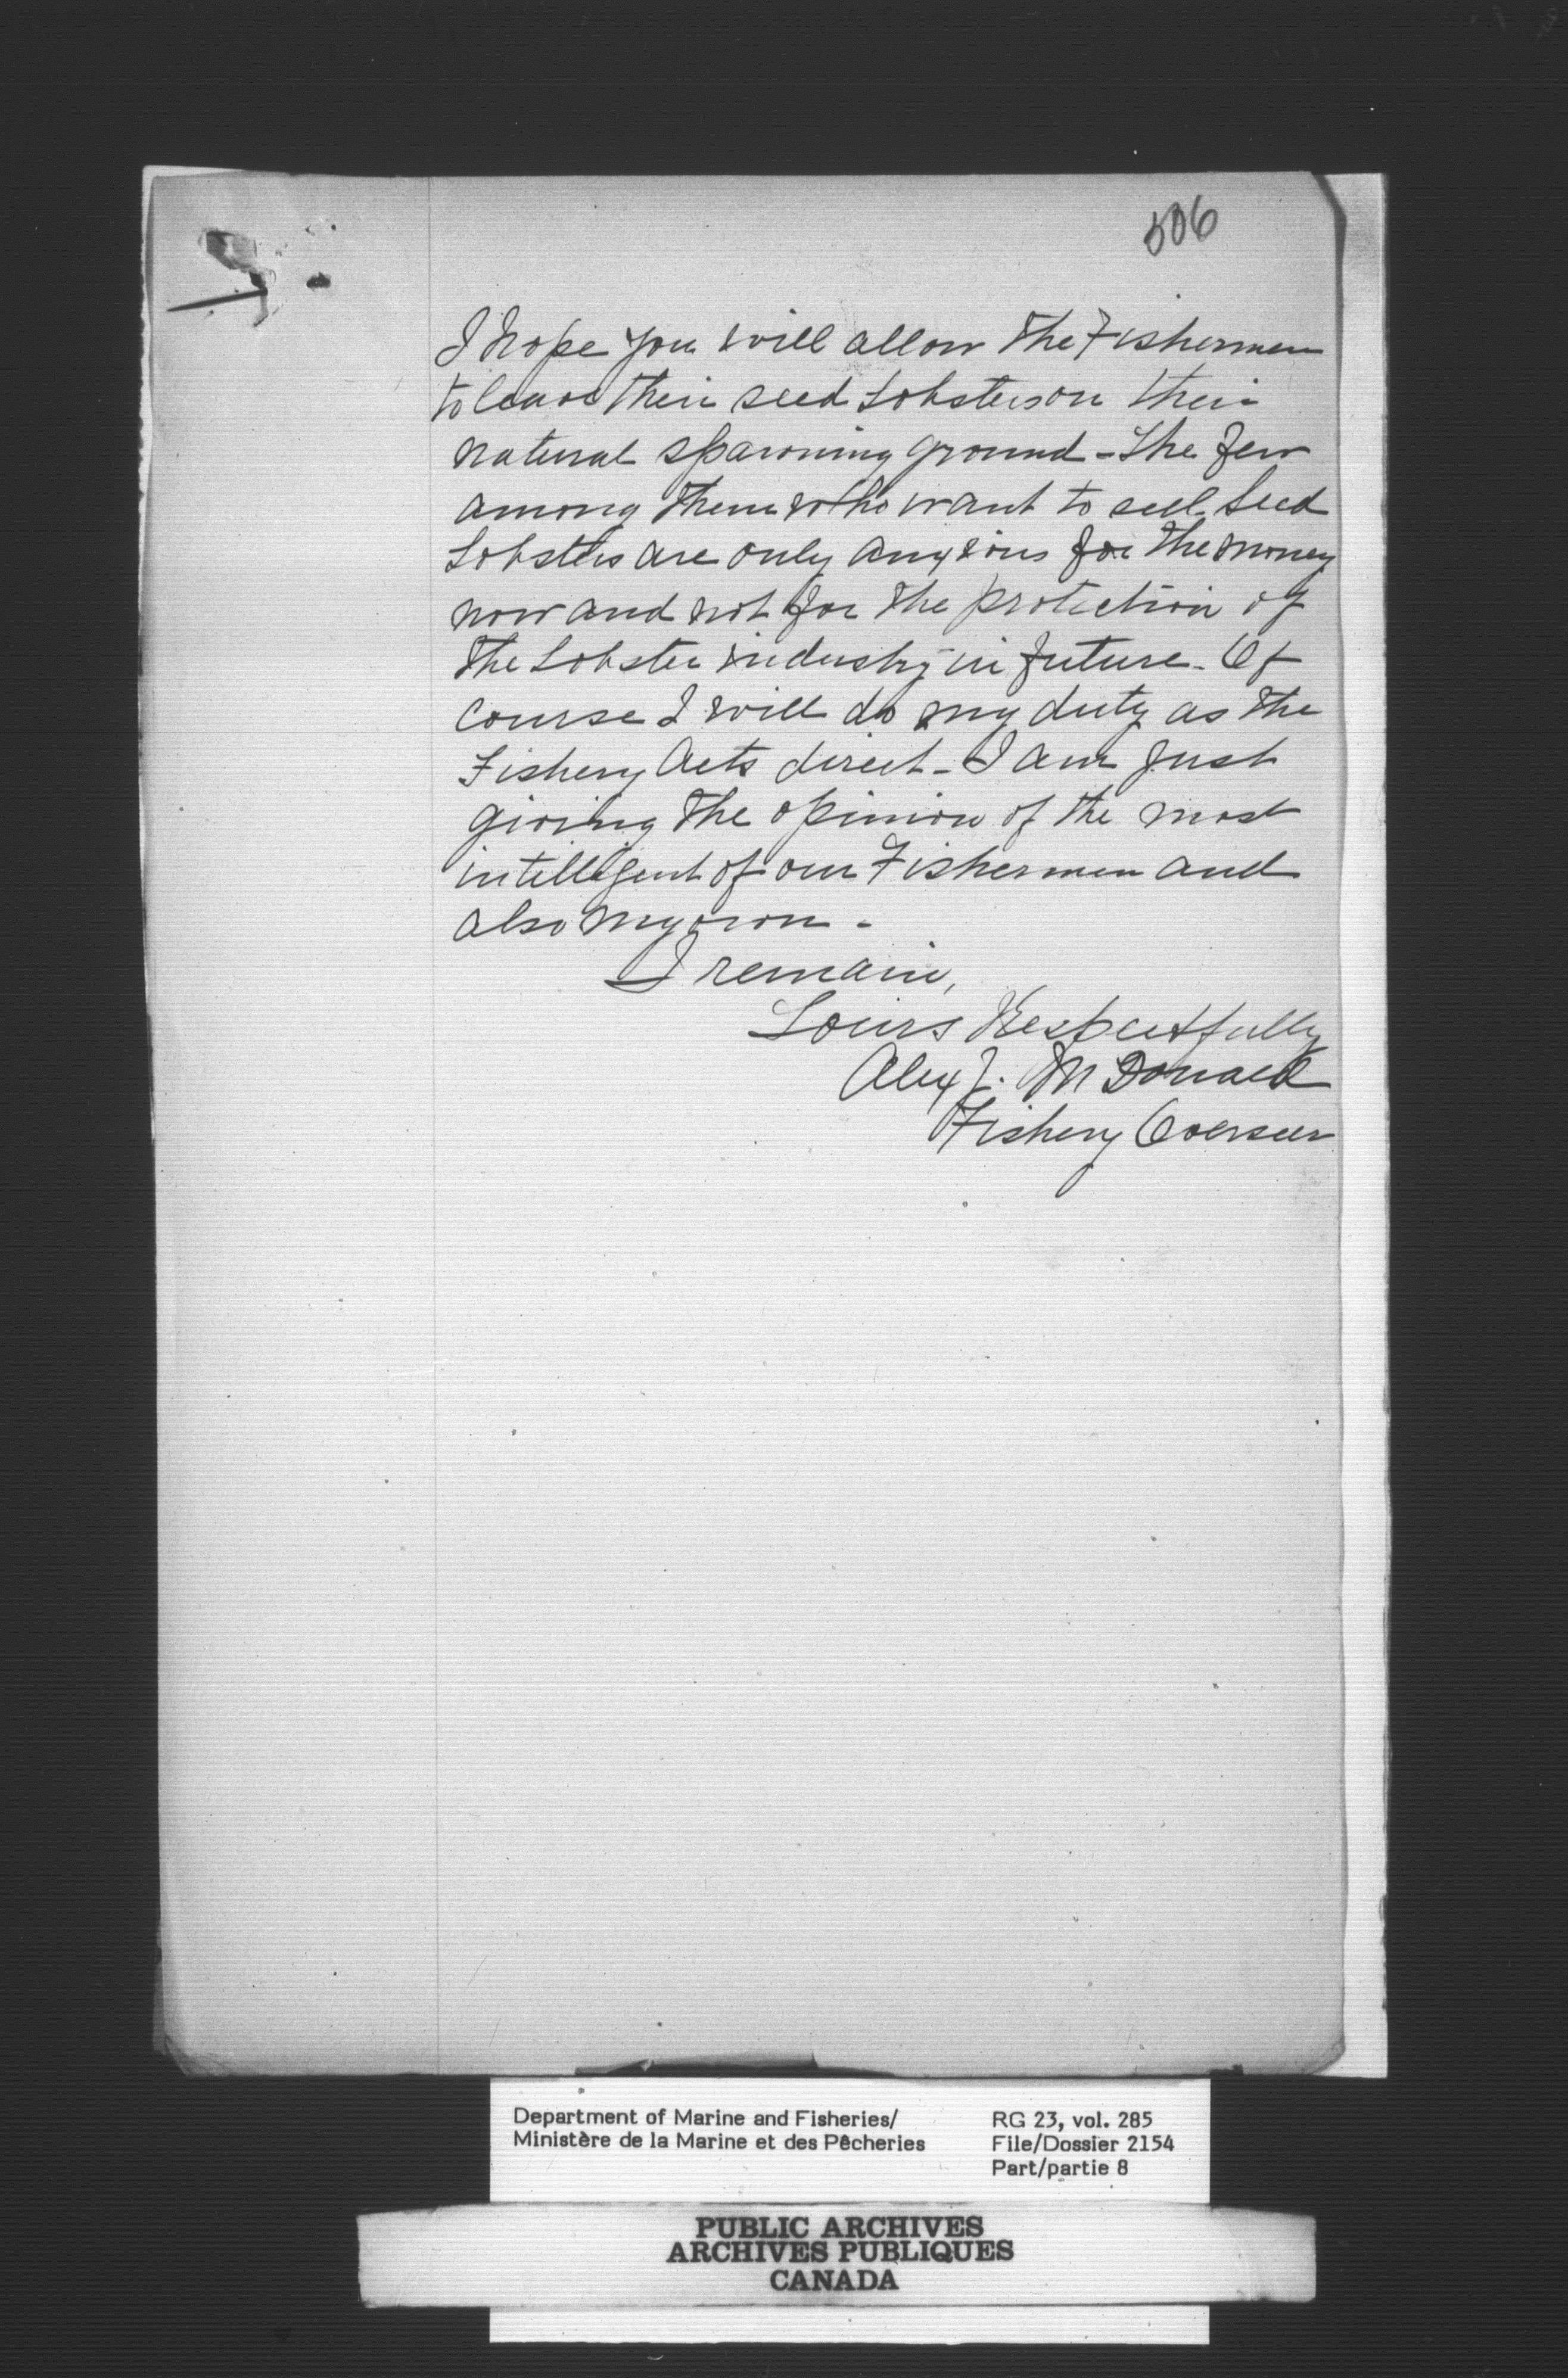 506
I hope you will allow the Fishermen
to leave their seed Lobsters on their
natural spawning ground - The few
among them who want to sell Seed
Lobsters are only anxious for the money
now and not for the protection of
the Lobster industry in future. Of
course I will do my duty as the
Fishery Acts direct - I am just
giving the opinion of the most
intelligent of our Fishermen and
also my own -
I remain,
Yours Respectfully
Alex J. McDonald
Fishery Overseer
Department of Marine and Fisheries/
Ministère de la Marine et des Pêcheries
RG 23, vol. 285
File/Dossier 2154
Part/partie 8
PUBLIC ARCHIVES
ARCHIVES PUBLIQUES
CANADA